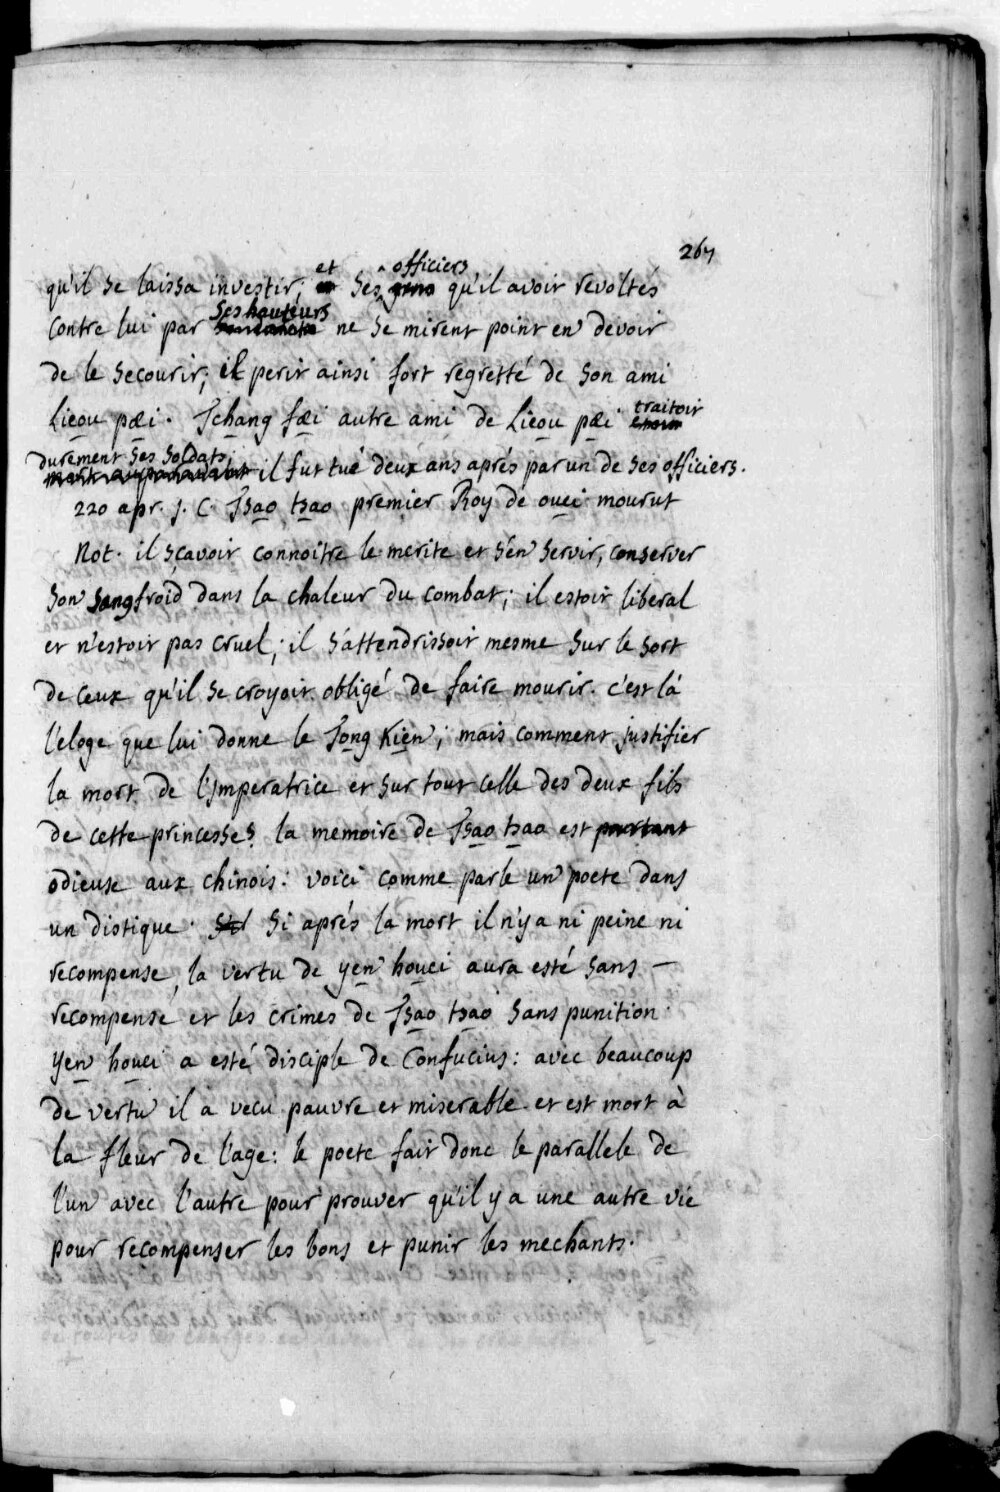 267
qu'il se laissa investir; et ses officiers qu'il avoit revoltés
contre lui par ses hauteurs ne se mirent point en devoir
de le secourir; il perit ainsi fort regretté de son ami
Lieou pæi. Tchang fæi autre ami de Lieou pæi traitoit
durement ses soldats; il fut tué deux ans aprés par un de ses officiers.
220 apr. J. C. Tsao tsao premier Roy de ouei mourut
Not. il sçavoit connoitre le merite et s'en servir, conserver
son sangfroid dans la chaleur du combat; il estoit liberal
et n'estoit pas cruel; il s'attendrissoit mesme sur le sort
de ceux qu'il se croyoit obligé de faire mourir. c'est là
l'eloge que lui donne le Tong Kien; mais comment justifier
la mort de l'Imperatrice et sur tout celle des deux fils
de cette princesse? la memoire de Tsao tsao est partant
odieuse aux chinois: voici comme parle un poete dans
un distique. S'il Si aprés la mort il n'y a ni peine ni
recompense, la vertu de yen houei aura esté sans —
recompense et les crimes de Tsao tsao sans punition.
yen houei a esté disciple de Confucius: avec beaucoup
de vertu il a vecu pauvre et miserable et est mort à
la fleur de l'age: le poete fait donc le parallele de
l'un avec l'autre pour prouver qu'il y a une autre vie
pour recompenser les bons et punir les mechants.